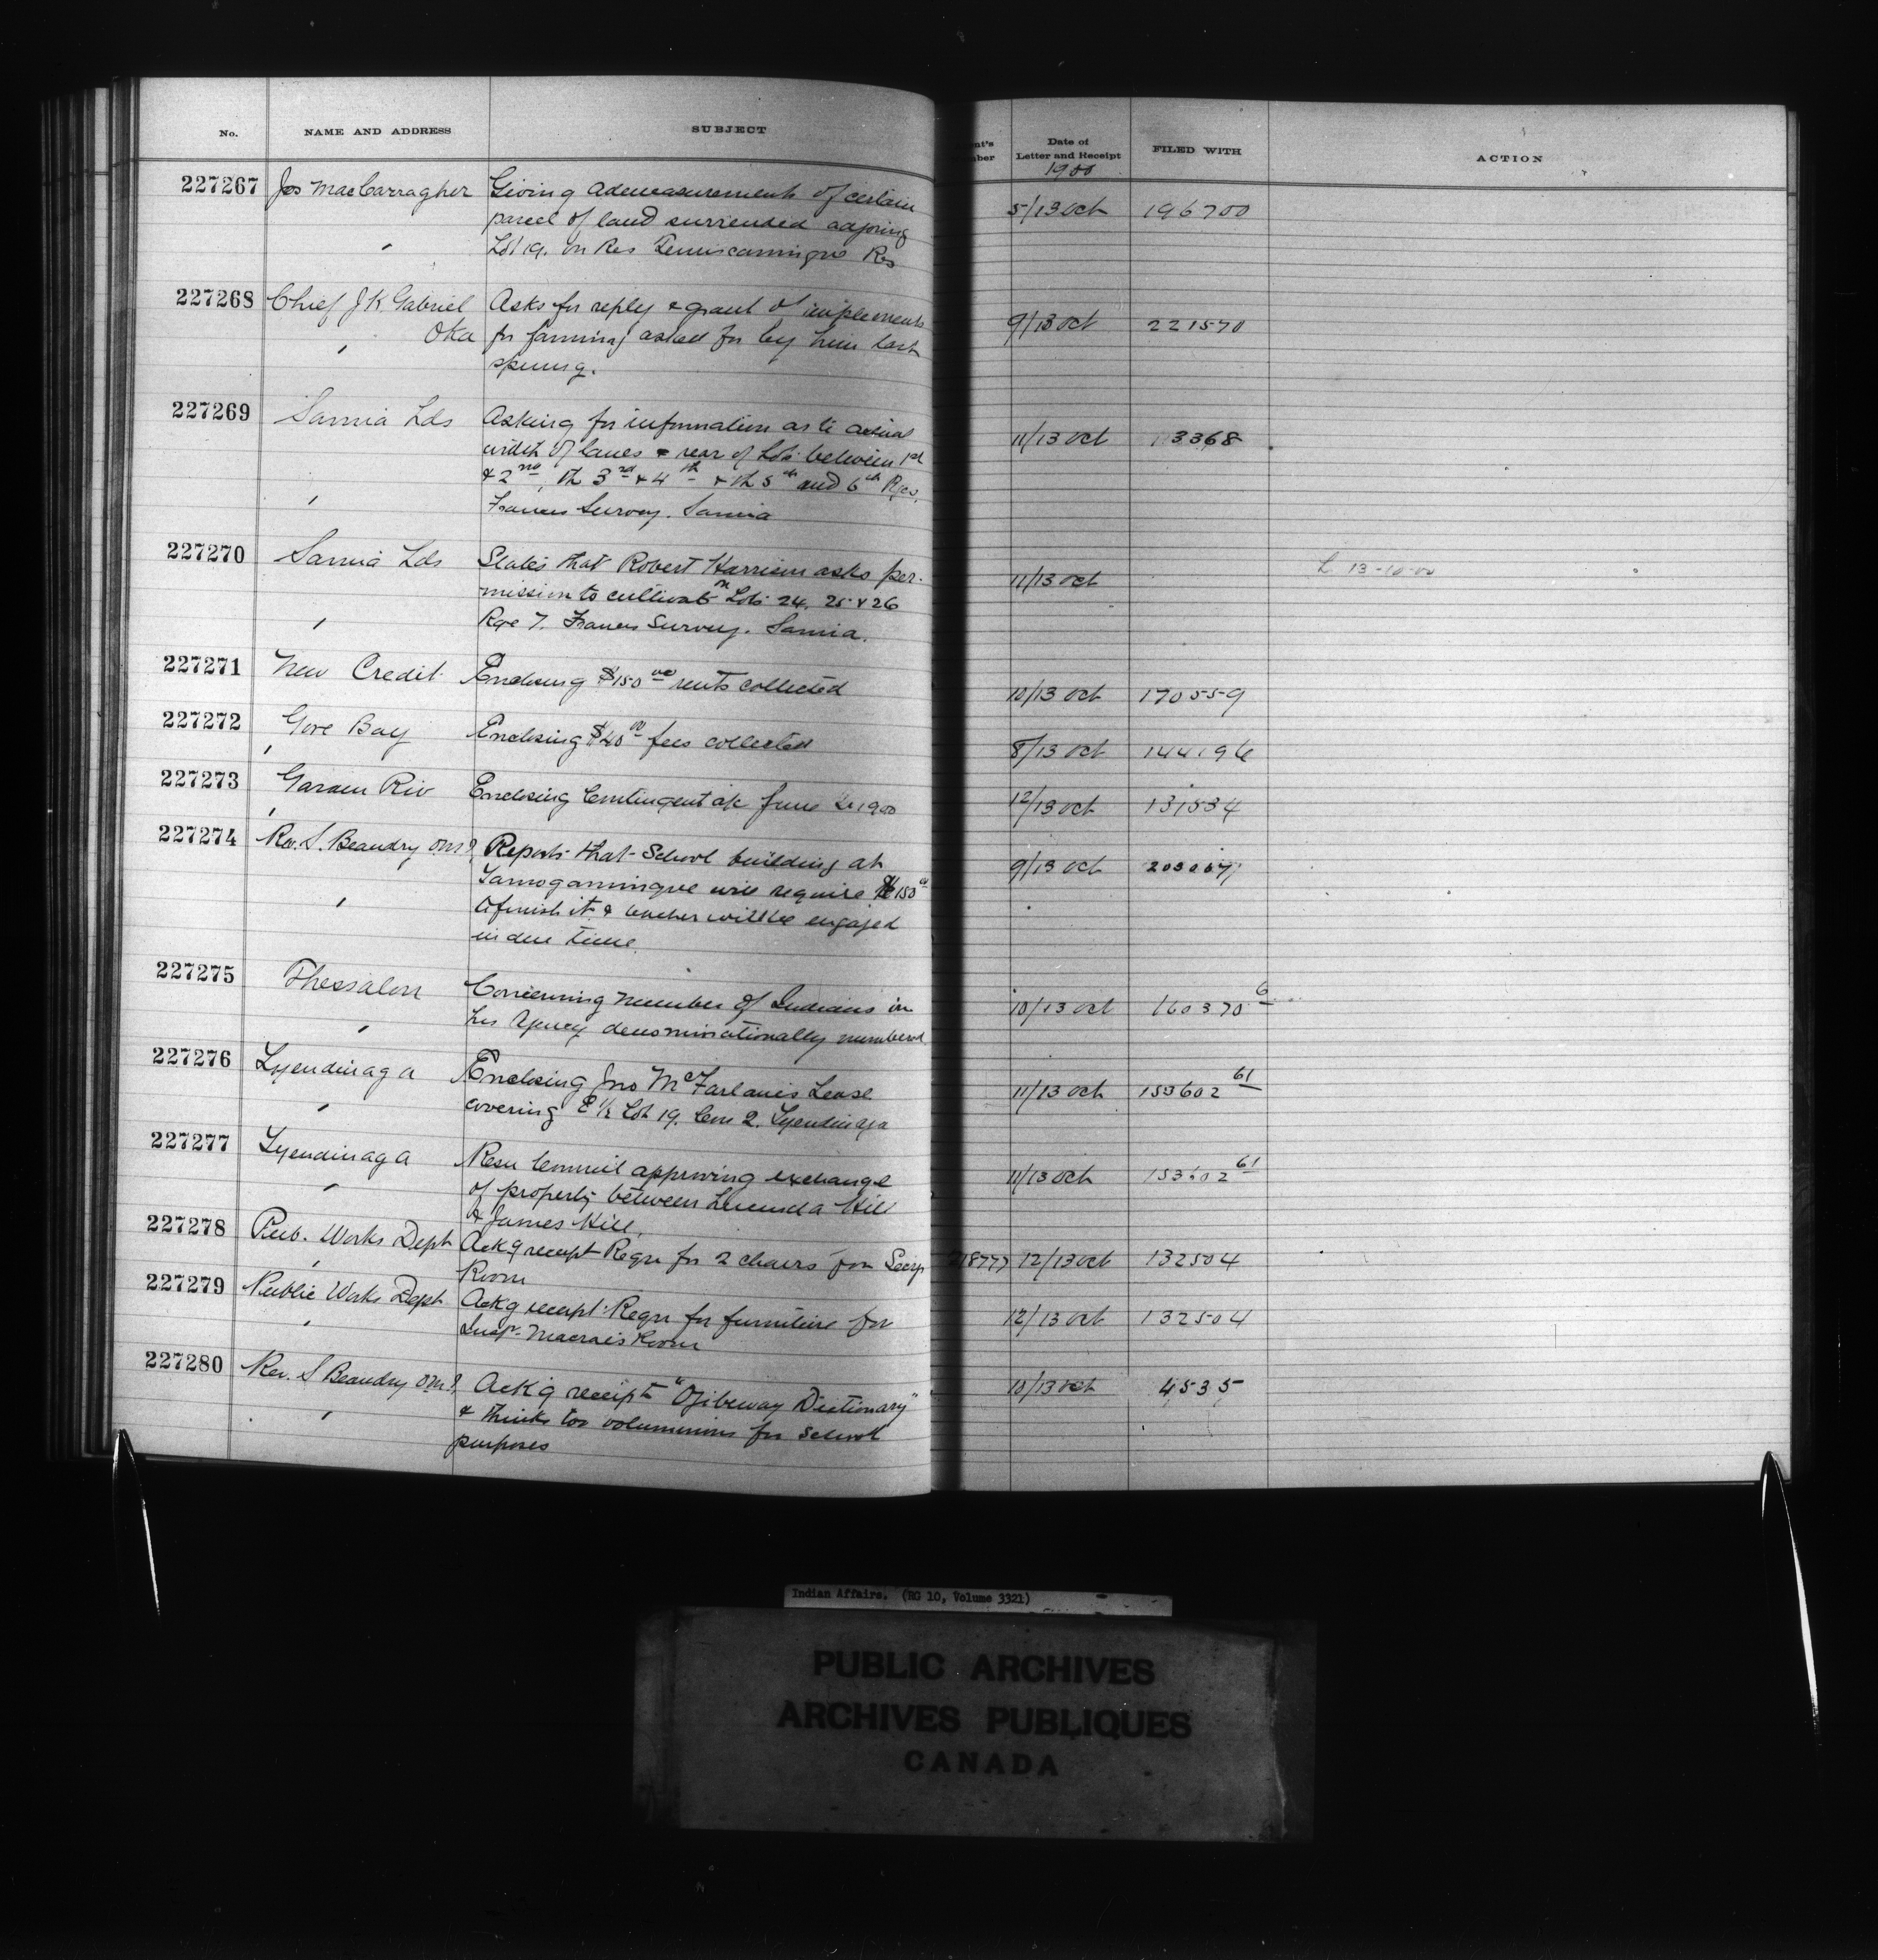 No. NAME AND ADDRESS SUBJECT
nt's
ber
Date of
Letter and Receipt
1900
FILED WITH ACTION
227267 Jos MacCarragher Giving admeasurements of certain 5/13 Oct 196700
parcel of land surrended adjoing
Lot 19. on Res Temiscamingue Res
227268 Chief J K Gabriel Asks for reply & grant of implements 9/13 Oct 221570
Oka for farming asked for by him last
spring.
227269 Sarnia Lds Asking for information as to actual 11/13 Oct 13368
width of lanes & rear of Lots between 1st
& 2nd, th 3rd & 4th & th 5th and 6th Rges.
Francis Survey. Sarnia
227270 Sarnia Lds States that Robert Harrison asks per- 11/13 Oct L 13-10-00
mission to cultivate Lots 24, 25 & 26
Rge 7. Francis Survey. Sarnia.
227271 New Credit Enclosing $150 00 rents collected 10/13 Oct 170559
227272 Gore Bay Enclosing $40 00 fees collected 8/13 Oct 144196
227273 Garden Riv Enclosing Contingent a/c June 1900 12/13 Oct 131534
227274 Rev. S. Beaudry Reports that School building at 9/13 Oct
Tamogamingue will require $150 00
to finish it & teacher will be engaged
in due time
227275 Thessalon Concerning number of Indians in 10/13 Oct 160370 6
his Agency denominationally numbered
227276 Tyendinaga Enclosing Jno McFarlane's Lease 11/13 Oct 153602 61
covering E ½ Lot 19. Con 2. Tyendinaga
227277 Tyendinaga Resn Council approving exchange 11/13 Oct 153602 61
of property between Lucinda Hill
& James Hill
227278 Pub. Works Dept Ackg receipt Reqn for 2 chairs for 12/13 Oct 132504
Room
227279 Public Works Dept Ackg receipt Reqn for furniture for 12/13 Oct 132504
Insp. Macrae's Room
227280 Rev. S Beaudry Ack'g receipt "Ojibeway Dictionary" 10/13 Oct 4535
& thinks too voluminous for School
purposes
Indian Affairs. (RG 10, Volume 3321)
PUBLIC ARCHIVES
ARCHIVES PUBLIQUES
CANADA